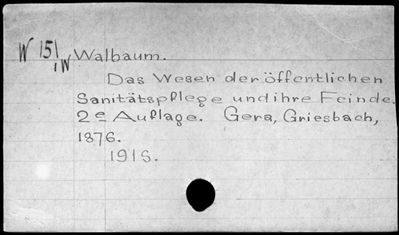 W 151
,W Walbaum.
Das Wesen der öffentlichen
Sanitätspflege und ihre Feinde.
2e Auflage. Gera, Griesbach,
1876.
1916.